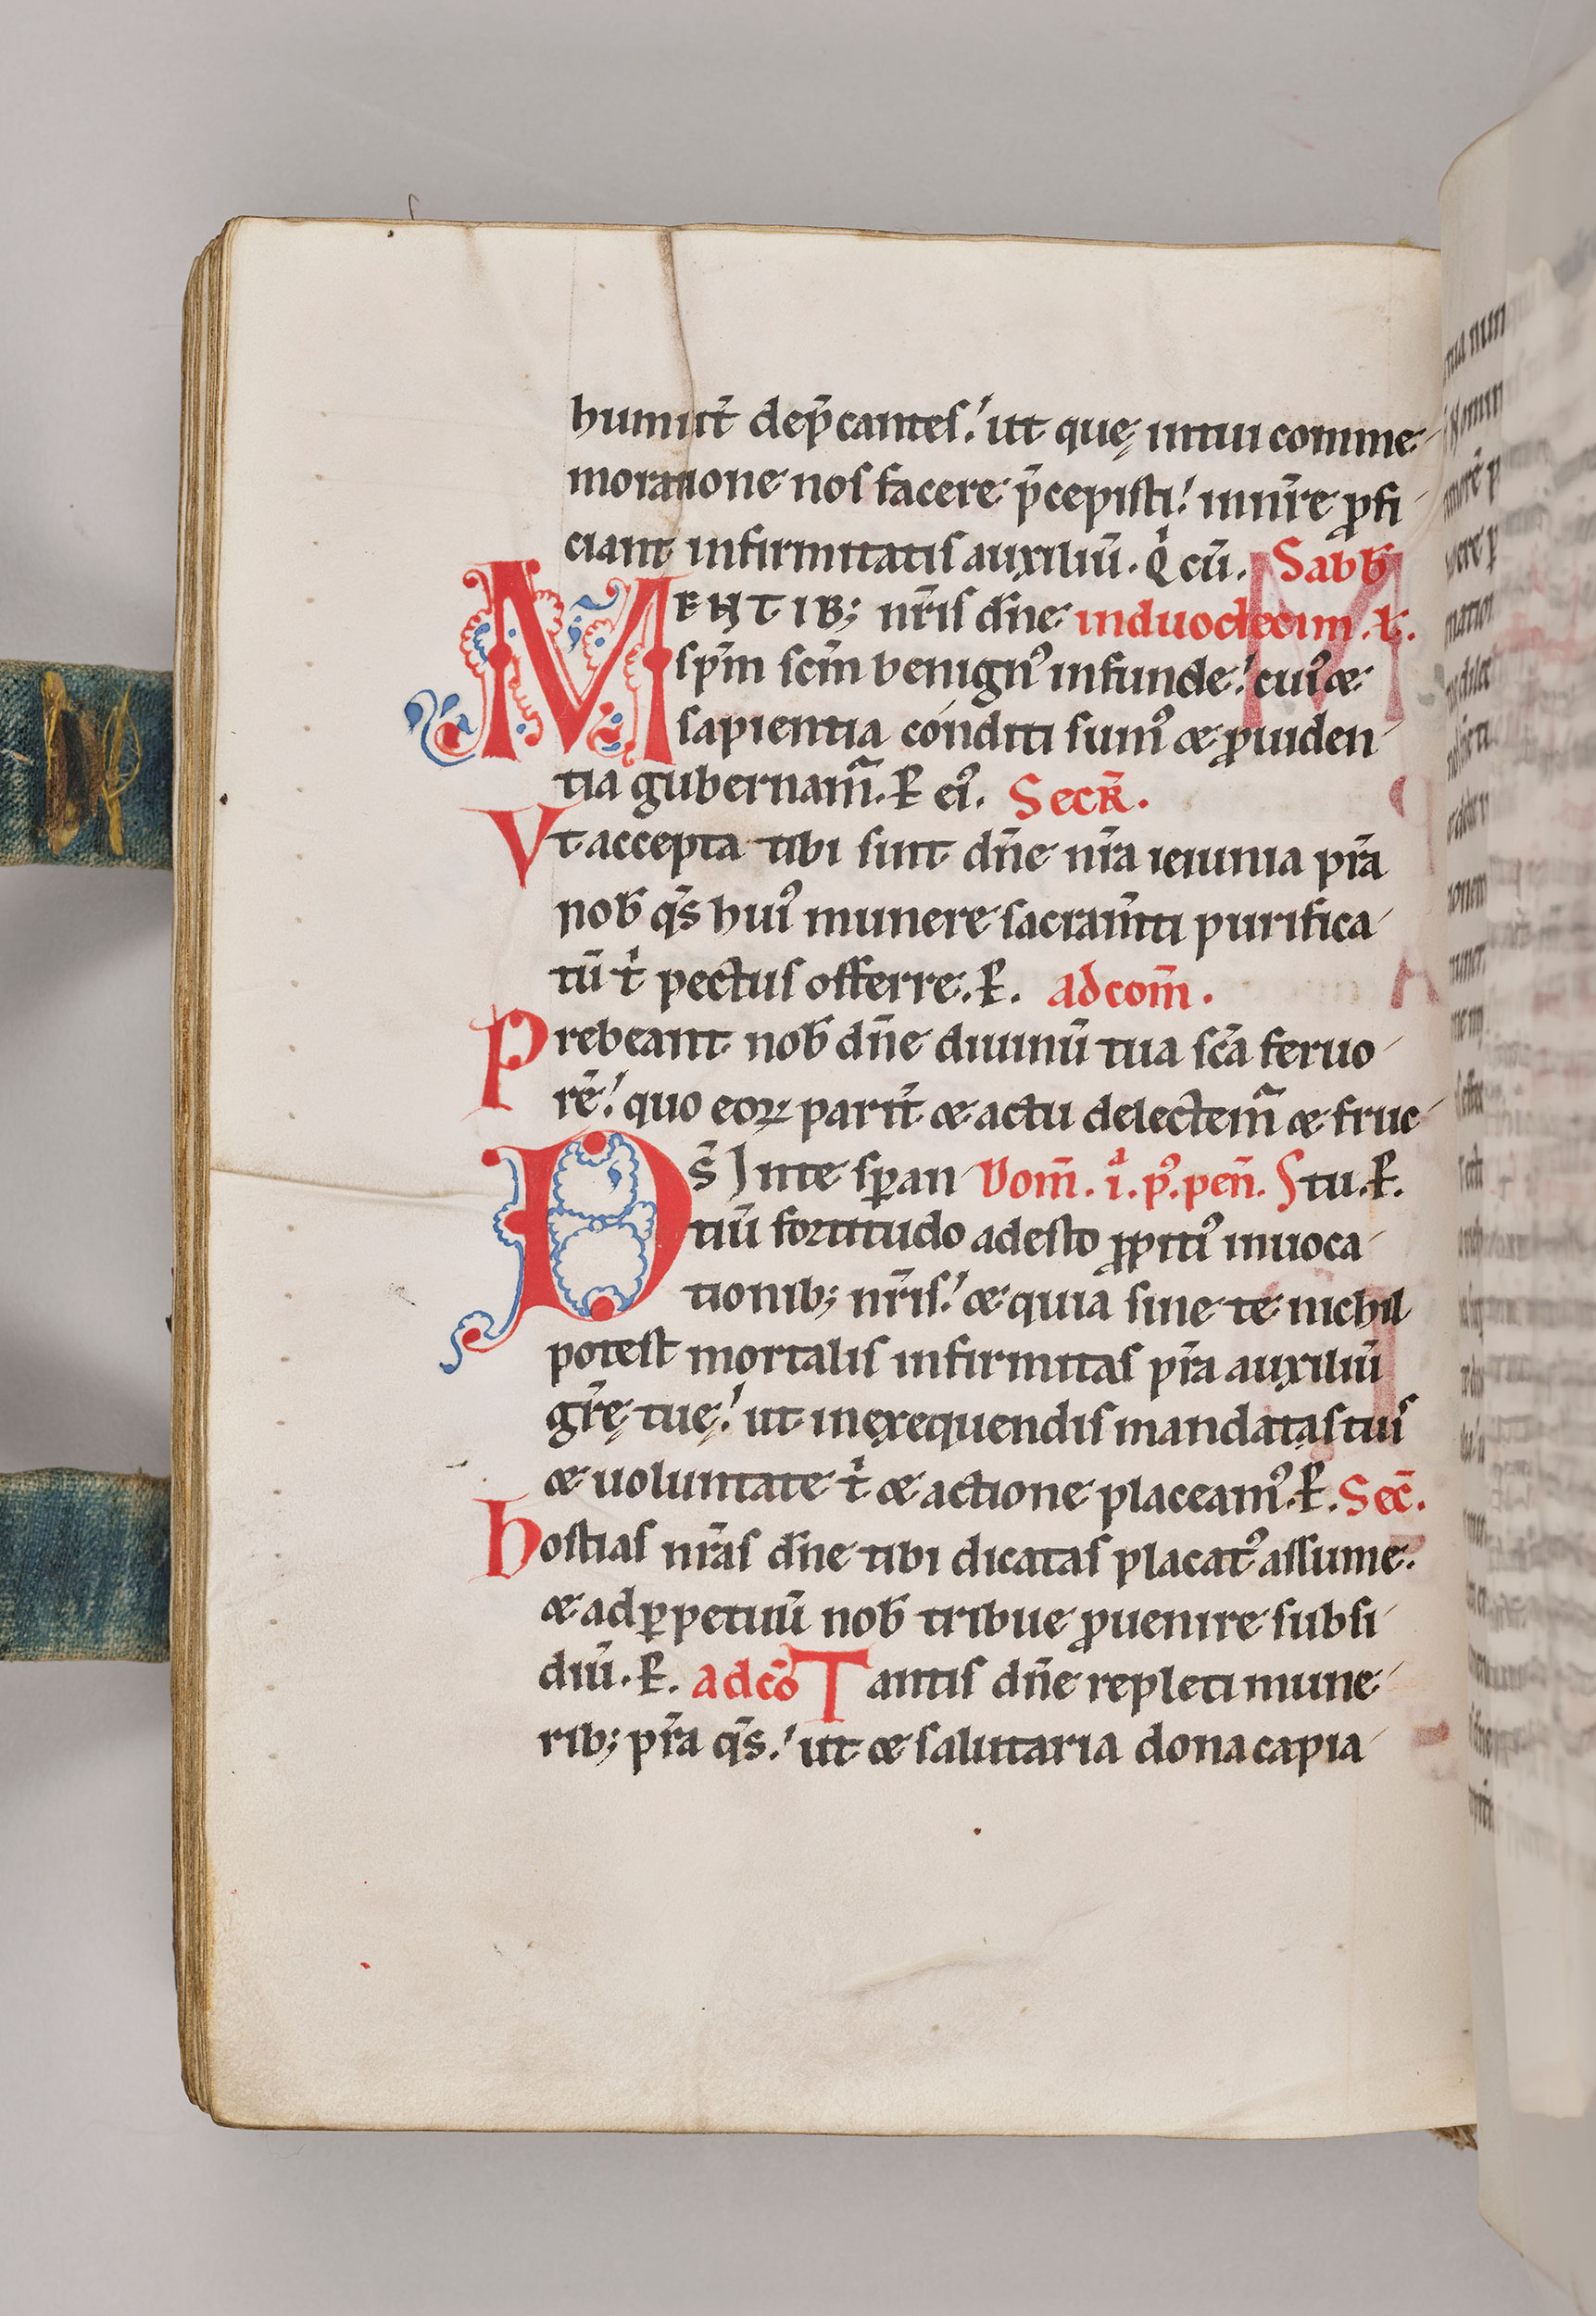 humilit̄ dep̄cantes! ut que᷒ intui comme
moratione nos facere p̄cepisti! innr̄e ꝓfi
ciant infirmitatis auxiliū. Q̇ cū. Sabb̄
MENTIB; nr̄is dn̄e induodecim .l.
sp̄m sc̄m benignꝰ infunde! cuiꝰ &
sapientia conditi sumꝰ & ꝓuiden
tia gubernam̃. P̄ eiꝰ. Secr̄.
Vt accepta tibi sint dn̄e nr̄a ieiunia pr̄a
nob̄ qs̄ huiꝰ munere sacram̄ti purifica
tū t̄ pectus offerre. P̄. adcom̄.
Prebeant nob̄ dn̄e diuinū tua sc̄a feruo
rē! quo eoꝝ parit̄ & actu delectem̃ & fruc
Ds̄ Inte speran Dom̄. i.ª pꝰ. pen̄. Stu. P̄.
tiū fortitudo adesto ꝓpitiꝰ inuoca
tionib; nr̄is! & quia sine te nichil
potest mortalis infirmitas pr̄a auxiliū
gr̄ę tuę! ut inexequendis mandatas tuis
& uoluntate t̄ & actione placeamꝰ. P̄. Sec̄.
hostias nr̄as dn̄e tibi dicatas placatꝰ assume.
& adꝑpetuū nob̄ tribue ꝓuenire subsi
diū. P̄. adcō Tantis dn̄e repleti mune
rib; pr̄a qs̄! ut & salutaria dona capia